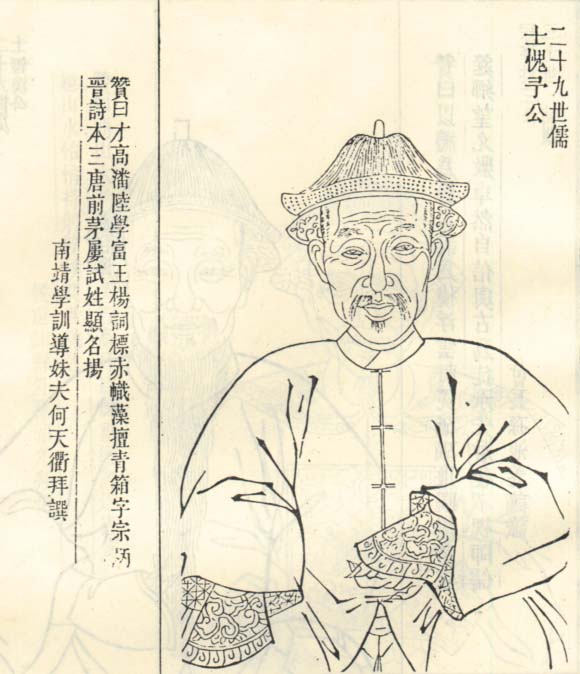 二十九世儒
士愧予公
贊曰才高潘陸學富王楊詞標赤幟藻擅青箱字宗兩
晉詩本三唐前茅屢試姓顯名揚
南靖學訓導妹夫何天衢拜譔